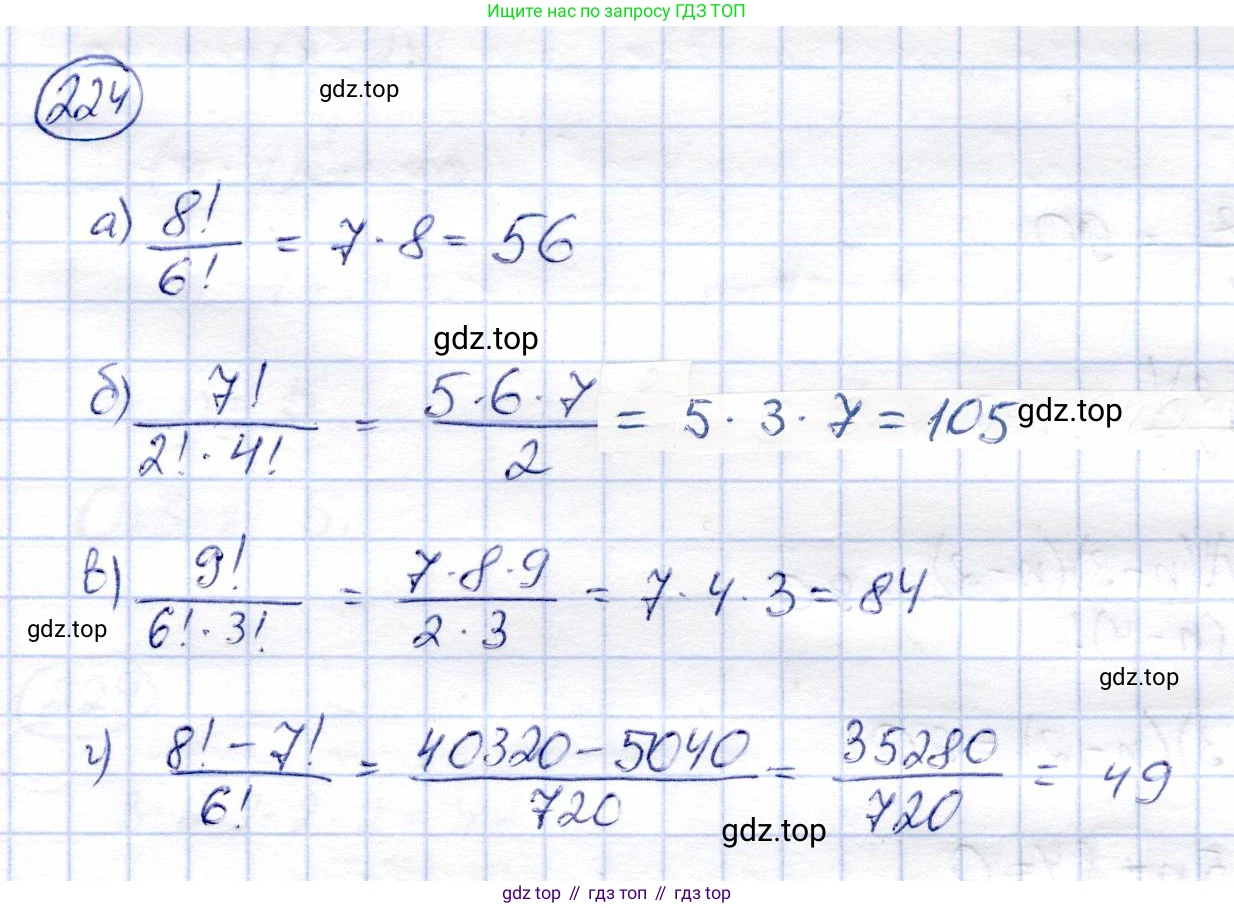 Ищите нас по запросу ГДЗ ТОП
224
gdz.top
а) 8!/6! = 7 · 8 = 56
gdz.top
б) 7!/(2! · 4!) = (5 · 6 · 7)/2 = 5 · 3 · 7 = 105
gdz.top
в) 9!/(6! · 3!) = (7 · 8 · 9)/(2 · 3) = 7 · 4 · 3 = 84
gdz.top
gdz.top
г) (8! – 7!)/6! = (40320 – 5040)/720 = 35280/720 = 49
gdz.top
gdz top // гдз топ // гдз top